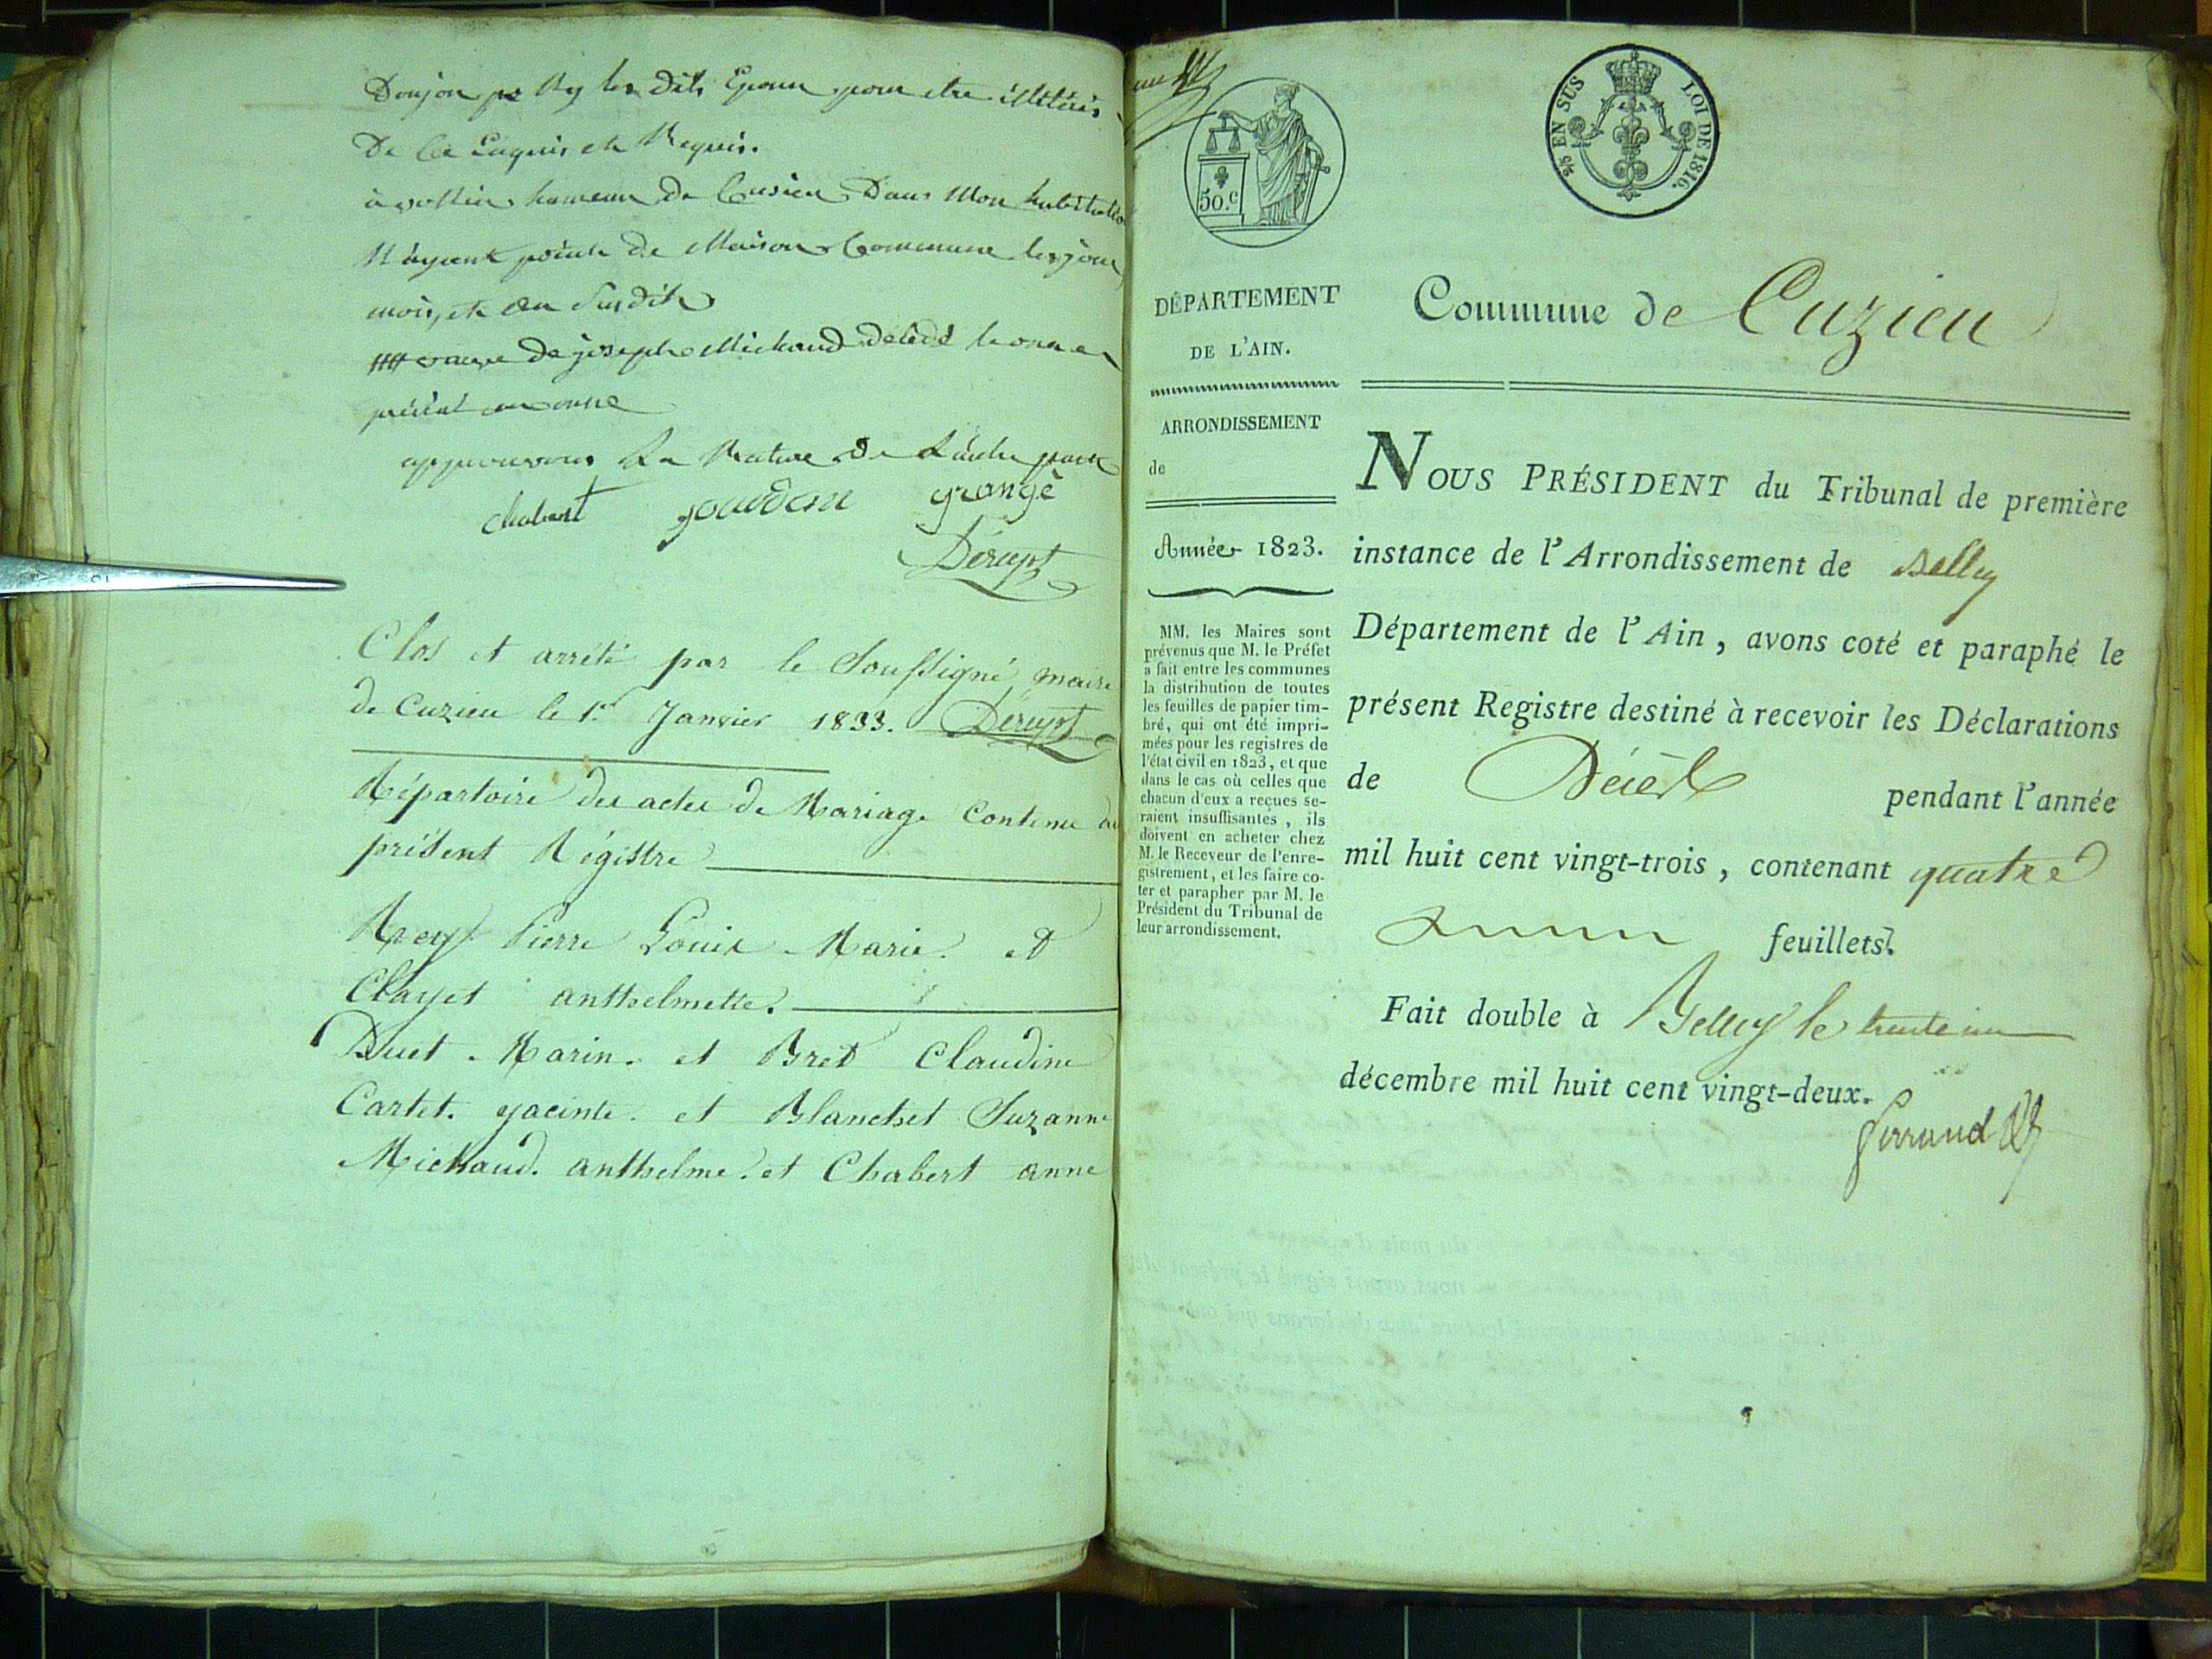 Donjon Rey les dits Epoux pour être illiteres
De ce Enquis et Requis.
à hameau de Cusieu Dans Mon habitation
N'ayant point de Maison Commune les jour
mois, et an Susdits
de joseph Michaud décédé
approuvons La Rature de
chabert goudin grangé
Dérupt
Clos et arrété par le Soussigné, maire
de Cuzieu le 1.er Janvier 1833. Dérupt
Répartoire des actes de Mariage Contenu au
présent Régistre
Rey Pierre Louis Marie. et
Clayet anthelmette.
Duet. Marin. et Bret Claudine
Cartet. yacinte. et Blanchet Suzanne
Michaud. anthelme. et Chabert anne
50.c
2/5 EN SUS LOI DE 1816.
DÉPARTEMENT
DE L'AIN.
ARRONDISSEMENT
de
Année 1823.
MM. les Maires sont
prévenus que M. le Préfet
a fait entre les communes
la distribution de toutes
les feuilles de papier tim-
bré, qui ont été impri-
mées pour les registres de
l'état civil en 1823, et que
dans le cas où celles que
chacun d'eux a reçues se-
raient insuffisantes, ils
doivent en acheter chez
M. le Receveur de l'enre-
gistrement, et les faire co-
ter et parapher par M. le
Président du Tribunal de
leur arrondissement.
Commune de Cuzieu
NOUS PRÉSIDENT du Tribunal de première
instance de l'Arrondissement de Belley
Département de l'Ain, avons coté et paraphé le
présent Registre destiné à recevoir les Déclarations
de Décès pendant l'année
mil huit cent vingt-trois, contenant quatre
feuillets.
Fait double à Belley le trente un
décembre mil huit cent vingt-deux.